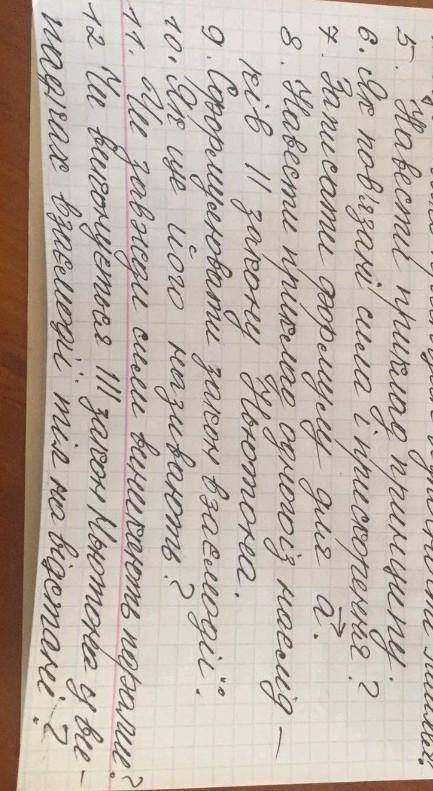 5. Навести приклад принципу.
6. Як пов'язані сила і прискорення?
7. Записати формулу для a⃗.
8. Навести приклад одного із наслід-
ків II закону Ньютона.
9. Сформулювати закон взаємодії.
10. Як ще його називають?
11. Чи завжди сили виникають парами?
12 Чи виконується III закон Ньютона у ви-
падках взаємодії тіл на відстані?